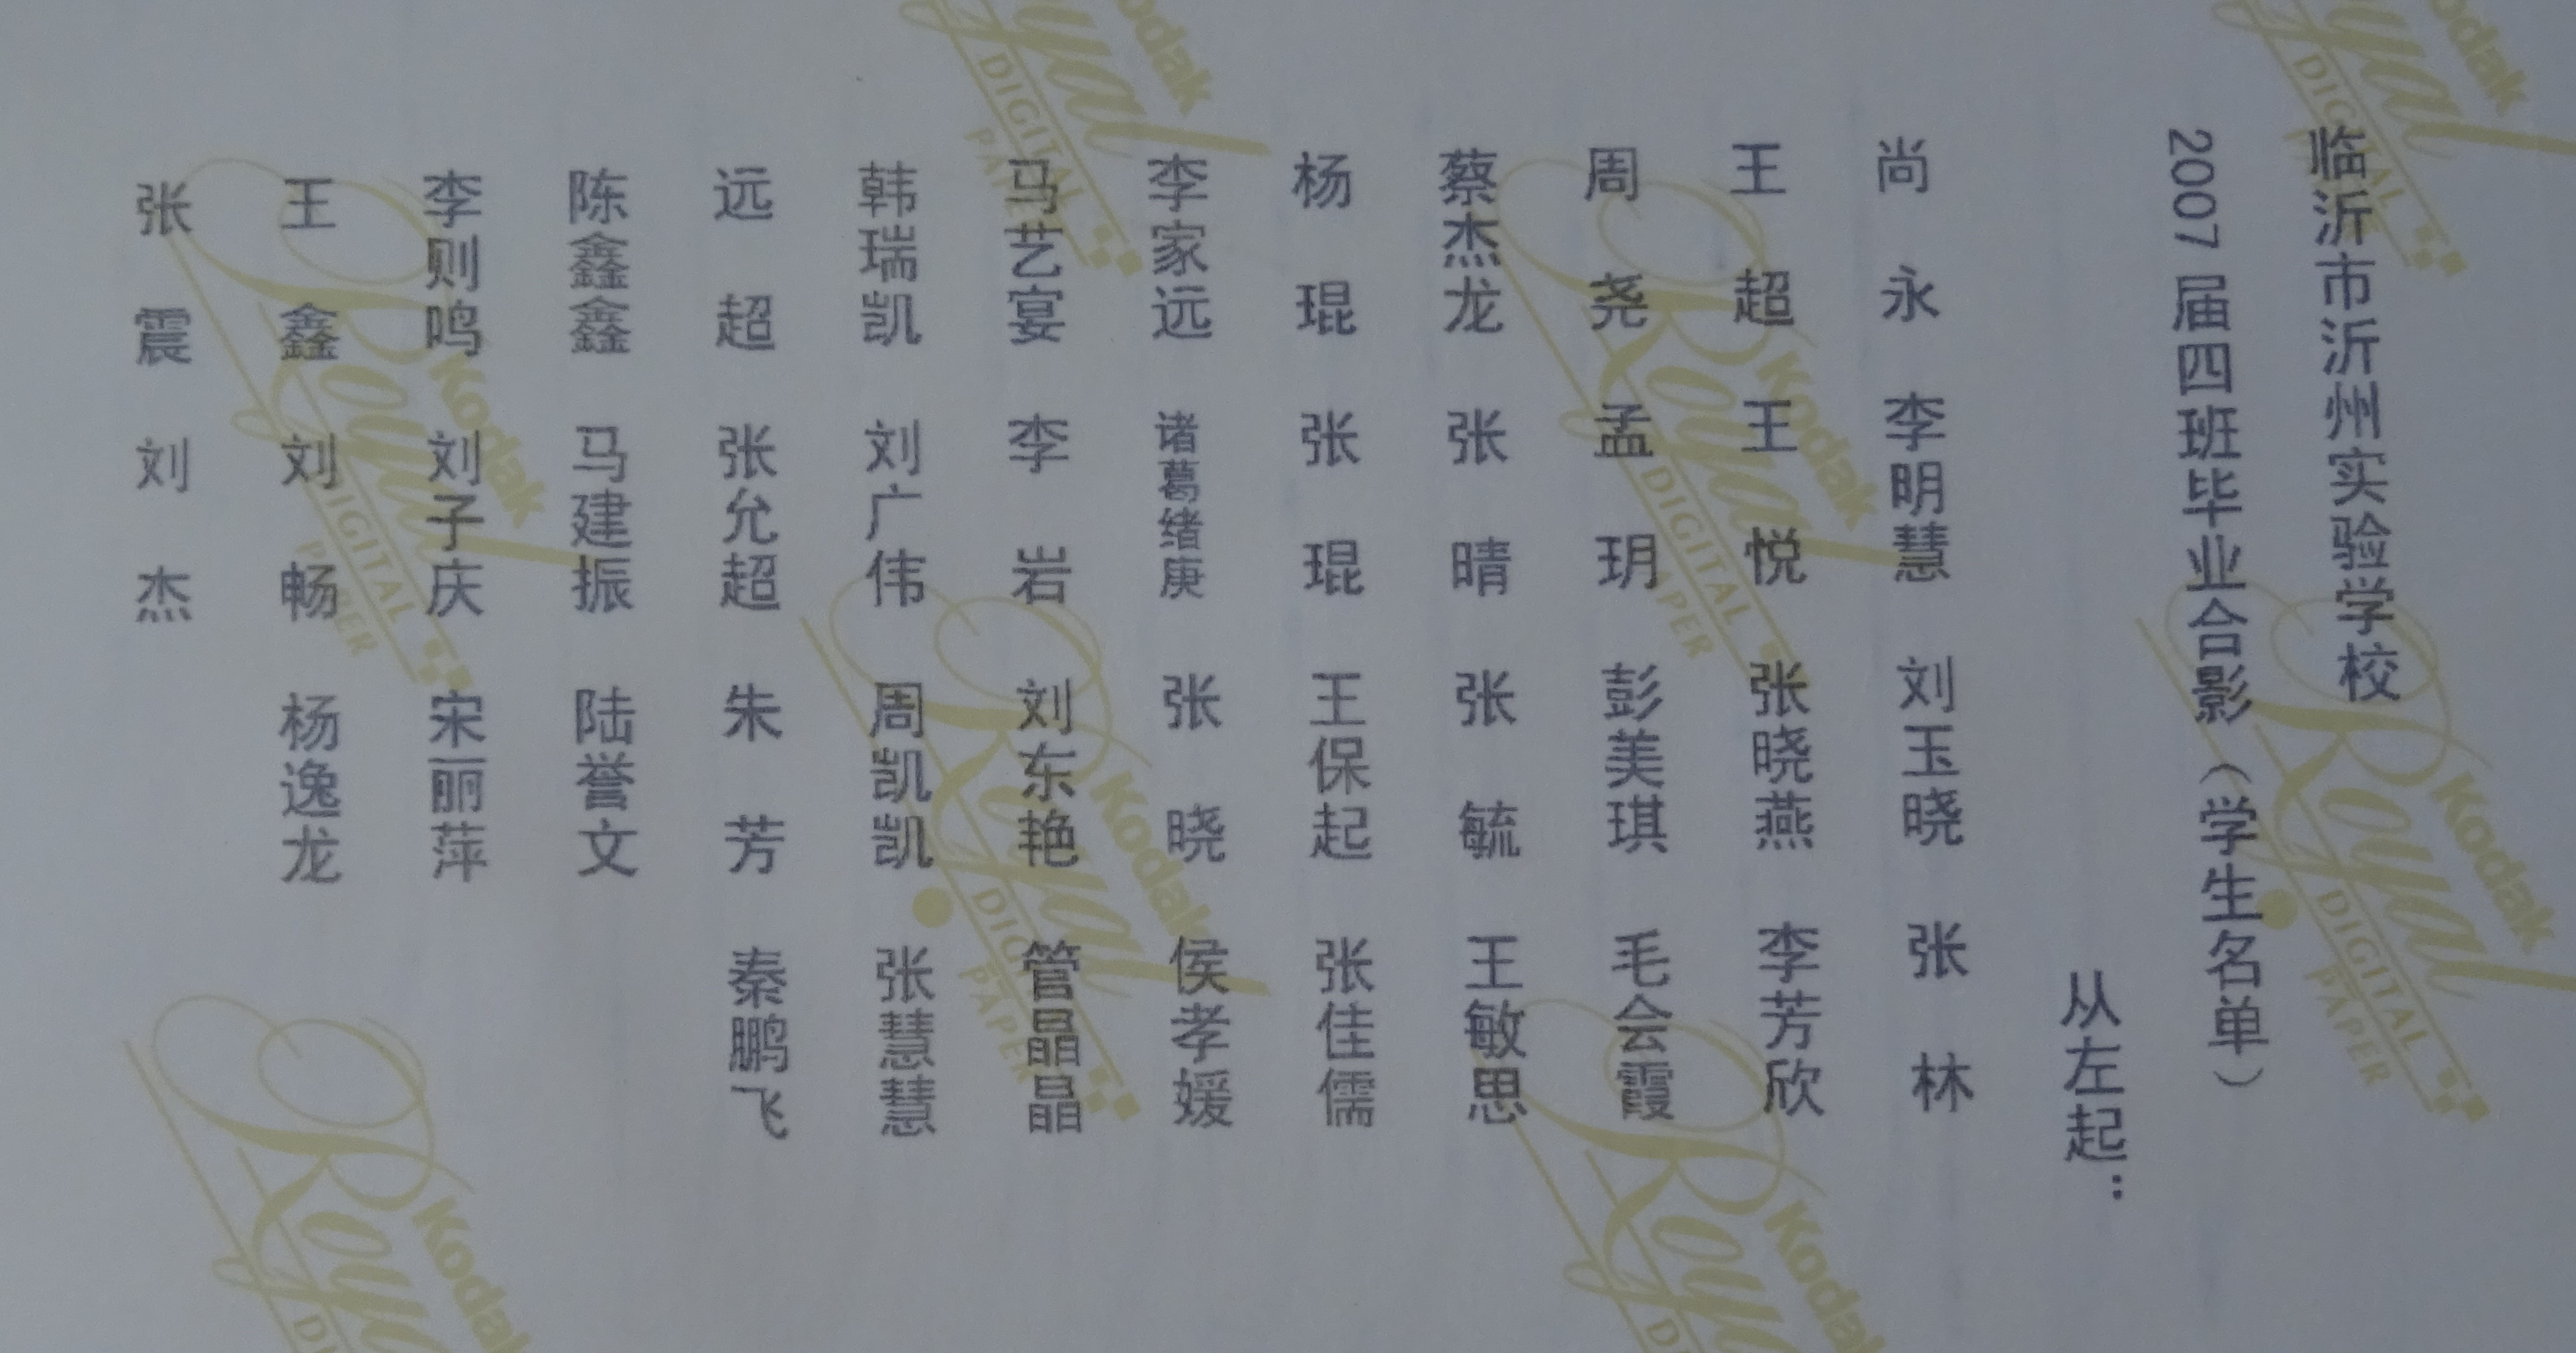 临沂市沂州实验学校
2007届四班毕业合影（学生名单）
从左起：
尚 永 李明慧 刘玉晓 张 林
王 超 王 悦 张晓燕 李芳欣
周 尧 孟 玥 彭美琪 毛会霞
蔡杰龙 张 晴 张 毓 王敏思
杨 琨 张 琨 王保起 张佳儒
李家远 诸葛绪庚 张 晓 侯孝媛
马艺宴 李 岩 刘东艳 管晶晶
韩瑞凯 刘广伟 周凯凯 张慧慧
远 超 张允超 朱 芳 秦鹏飞
陈鑫鑫 马建振 陆誉文
李则鸣 刘子庆 宋丽萍
王 鑫 刘 畅 杨逸龙
张 震 刘 杰
Kodak
Royal
DIGITAL
PAPER